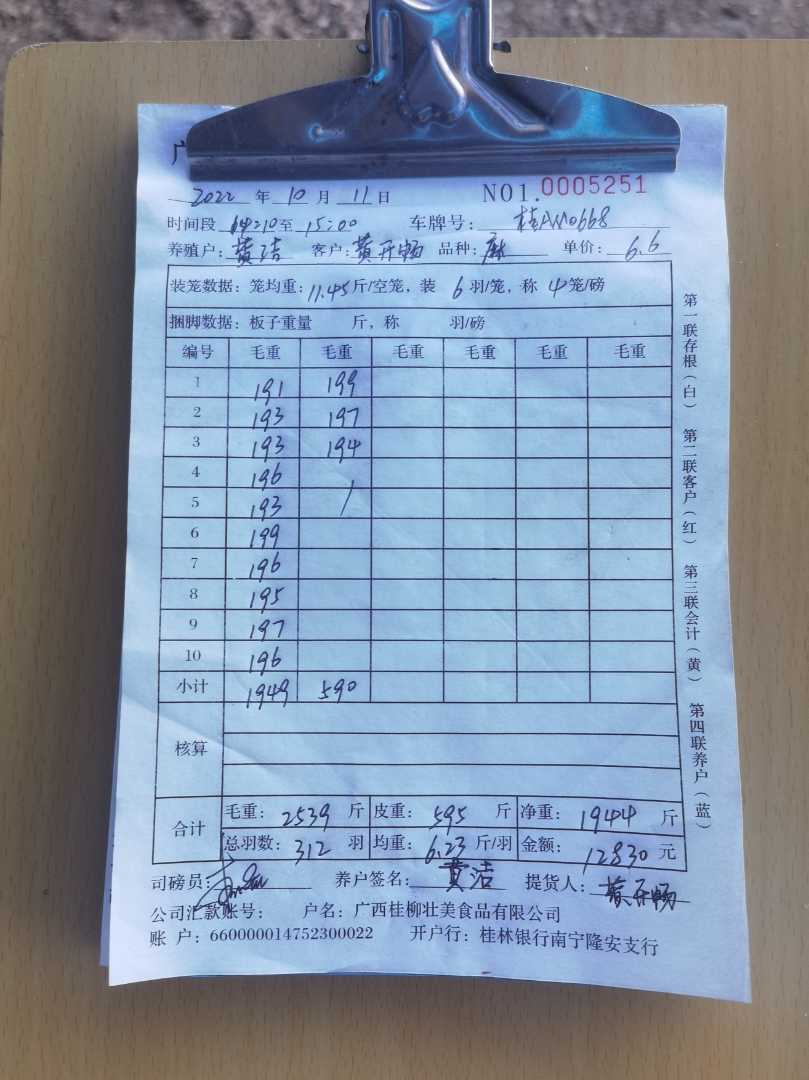 广
2022 年 10 月 11 日 NO1. 0005251
时间段 14:10 至 15:00 车牌号: 桂AW0668
养殖户: 黄洁 客户: 黄开畅 品种: 麻 单价: 6.6
装笼数据: 笼均重: 11.45 斤/空笼, 装 6 羽/笼, 称 4 笼/磅
捆脚数据: 板子重量 斤, 称 羽/磅
编号 毛重 毛重 毛重 毛重 毛重 毛重
1 191 199
2 193 197
3 193 194
4 196
5 193 /
6 199
7 196
8 195
9 197
10 196
小计 1949 590
核算
合计 毛重: 2539 斤 皮重: 595 斤 净重: 1944 斤
总羽数: 312 羽 均重: 6.23 斤/羽 金额: 12830 元
司磅员: 养户签名: 黄洁 提货人: 黄开畅
公司汇款账号: 户名: 广西桂柳壮美食品有限公司
账 户: 660000014752300022 开户行: 桂林银行南宁隆安支行
第一联存根(白) 第二联客户(红) 第三联会计(黄) 第四联养户(蓝)